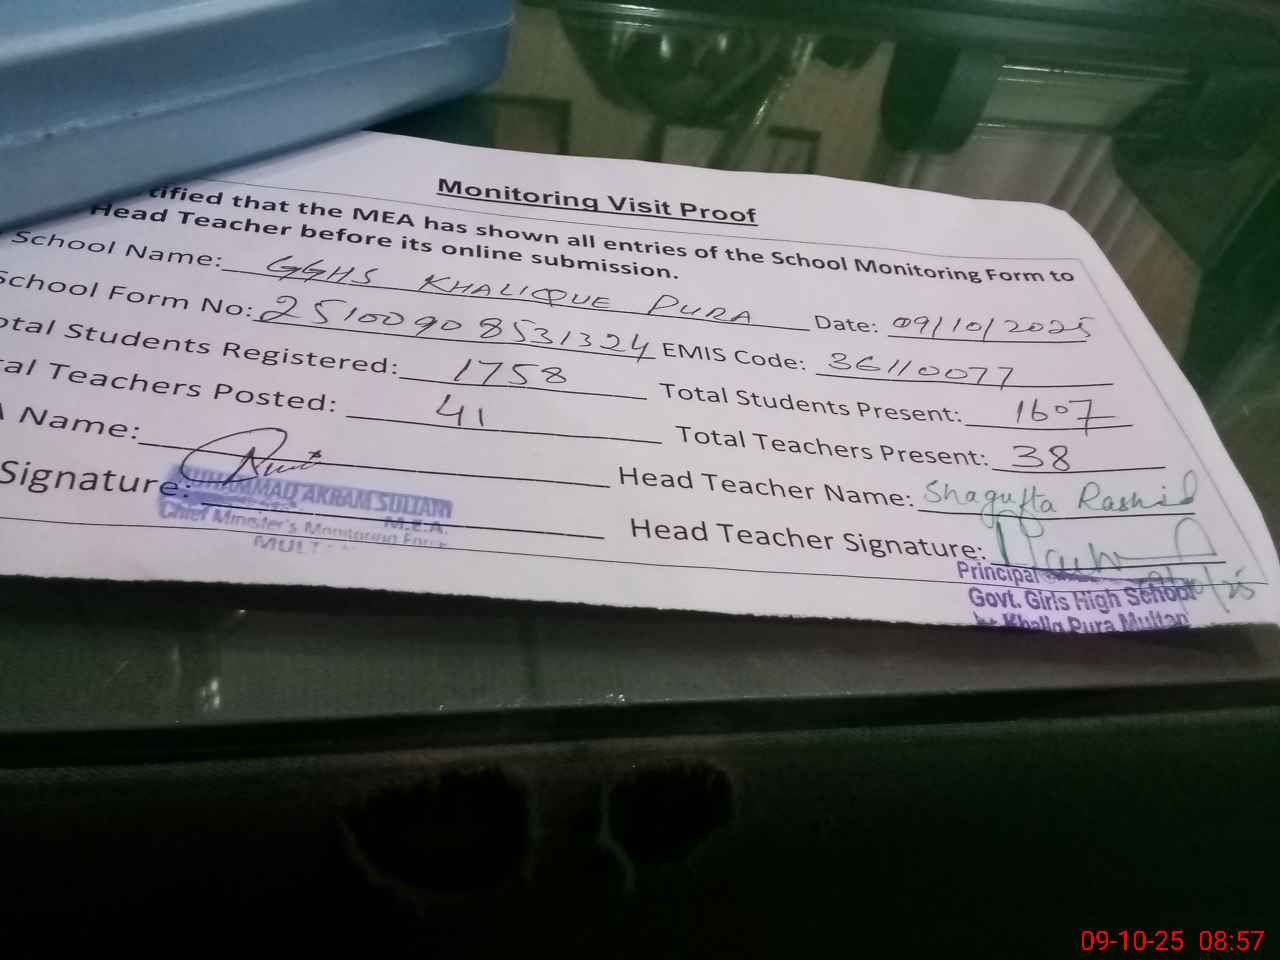 Monitoring Visit Proof
tified that the MEA has shown all entries of the School Monitoring Form to
Head Teacher before its online submission.
School Name: GGHS KHALIQUE PURA Date: 09/10/2025
School Form No: 25100908531324 EMIS Code: 36110077
otal Students Registered: 1758 Total Students Present: 1607
al Teachers Posted: 41 Total Teachers Present: 38
Name: Head Teacher Name: Shagufta Rashid
Signature: Head Teacher Signature:
MUHAMMAD AKRAM SULTAN
M.E.A.
Chief Minister's Monitoring Force
MULT
Principal
Govt. Girls High School
Khaliq Pura Multan
09-10-25 08:57